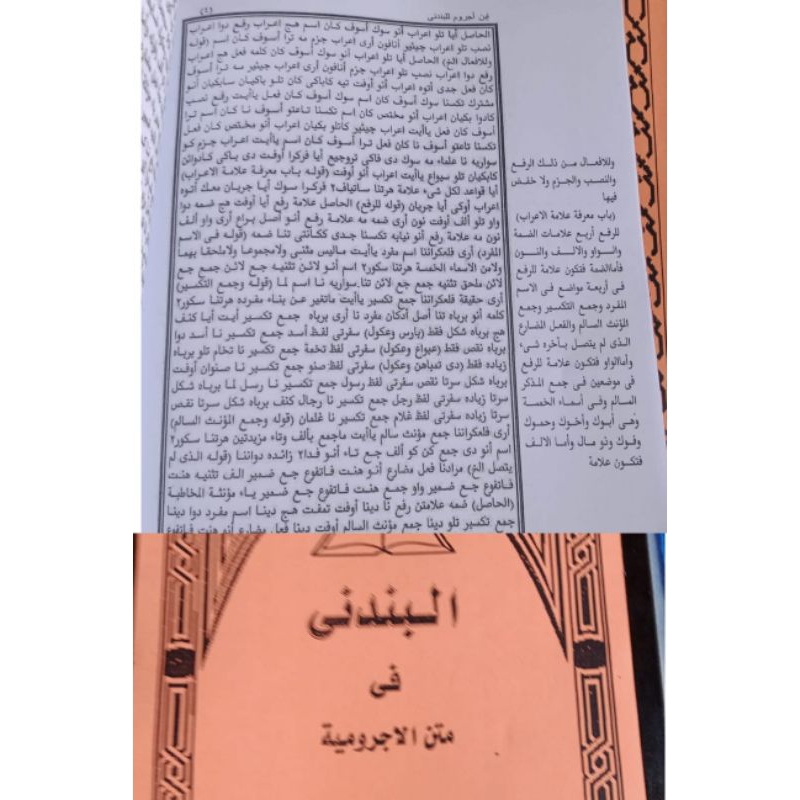 (٤)
فن أجروم للبندنى
الحاصل أيا تلو اعراب أنو سوك أسوف كان اسم هج اعراب رفع دوا اعراب
نصب تلو اعراب جيئير أنافون أرى اعراب جزم مه ترا أسوف كان اسم (قوله
وللافعال الخ) الحاصل أيا تلو اعراب أنو سوك أسوف كان كلمه فعل هج اعراب
رفع دوا اعراب نصب تلو اعراب جزم أنافون أرى اعراب جيئير مه ترا أسوف
كان فعل جدى أتوه اعراب أنو أوفت تيه كاباكى كان تلو باكيان سابكيان أنو
مشترك تكسنا سوك أسوف كان اسم سوك أسوف كان فعل ياأيت رفع نصب
كادوا بكيان اعراب أنو مختص كان اسم تكسنا تاعتو أسوف نا كان اسم ترا
أسوف كان فعل ياأيت اعراب جيئير كاتلو بكيان اعراب أنو مختص كان فعل
تكسنا تاعتو أسوف نا كان فعل ترا أسوف كان اسم ياأيت اعراب جزم كو
سواريه نا علماء مه سوك دى فاكى تروجيع أيا فركرا أوفت دى باكى كادواتن
كابكيان تلو سيواع ياأيت اعراب أنو أوفت (قوله باب معرفة علامة الاعراب)
أيا قواعد لكل شىء علامة هرتنا ساتياف٢ فركرا سوك أيا جريان معك أتوه
اعراب أوكى أيا جريان (قوله للرفع) الحاصل علامة رفع أيا أوفت هج ضمه دوا
واو تلو ألف أوفت نون أرى ضمه مه علامة رفع أنو أصل براع أرى واو ألف
نون مه علامة رفع أنو نيابه تكسنا جدى ككانتى تنا ضمه (قوله فى الاسم
المفرد) أرى فلعكراننا اسم مفرد ياأيت ماليس مثنى ولامجموعا ولاملحقا بهما
ولامن الاسماء الخمسة هرتنا سكور٢ اسم أنو لائن تثنيه جع لائن جمع جع
لائن ملحق تثنيه جمع جع لائن تتا سواريه نا اسم لما (قوله وجمع التكسير)
أرى حقيقة فلعكراننا جمع تكسير ياأيت ماتغير عن بناء مفرده هرتنا سكور٢
كلمه أنو برباه تتا أصل أدكان مفرد نا أرى برباه جمع تكسير أيت أيا كنف
هج برباه شكل فقط (بارس وعكول) سفرتى لفظ أسد جمع تكسير نا أسد دوا
برباه نقص فقط (عيواغ وعكول) سفرتى لفظ تخمة جمع تكسير نا تخام تلو برباه
زياده فقط (دى تمباهن وعكول) سفرتى لفظ صنو جمع تكسير نا صنوان أوفت
برباه شكل سرتا نقص سفرتى لفظ رسول جمع تكسير نا رسل لما برباه شكل
سرتا زياده سفرتى لفظ رجل جمع تكسير نا رجال كنف برباه شكل سرتا نقص
سرتا زياده سفرتى لفظ غلام جمع تكسير نا غلمان (قوله وجمع المؤنث السالم)
أرى فلعكراننا جمع مؤنث سالم ياأيت ماجمع بألف وتاء مزيدتين هرتنا سكور٢
اسم أنو دى جمع كن كو ألف جع تاء أنو فدا٢ زائده دواننا (قوله الذى لم
يتصل الخ) مرادنا فعل مضارع أنو هنت فاتفوع جع ضمير الف تثنيه هنت
فاتفوع جع ضمير واو جمع هنت فاتفوع جع ضمير ياء مؤنثة المخاطبة
(الحاصل) ضمه علامتن رفع نا دينا أوفت تمفت هج دينا اسم مفرد دوا دينا
جمع تكسير تلو دينا جمع مؤنث السالم أوفت دينا فعل مضارع أنو هنت فاتفوع
وللافعال من ذلك الرفع
والنصب والجزم ولا خفض
فيها
(باب معرفة علامة الاعراب)
للرفع أربع علامات الضمة
والواو والالف والنون
فأماالضمة فتكون علامة للرفع
فى أربعة مواضع فى الاسم
المفرد وجمع التكسير وجمع
المؤنث السالم والفعل المضارع
الذى لم يتصل بآخره شىء
وأماالواو فتكون علامة للرفع
فى موضعين فى جمع المذكر
السالم وفى أسماء الخمسة
وهى أبوك وأخوك وحموك
وفوك وذو مال وأما الالف
فتكون علامة
البندنى
فى
متن الاجرومية